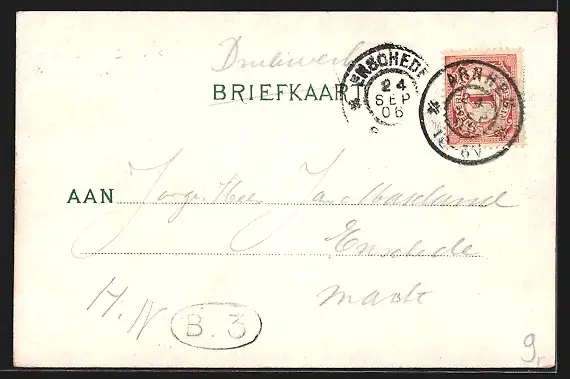 Drukwerk
BRIEFKAART
ENSCHEDE
24
SEP
06
ARNHEM
1
AAN Jonge Heer Jac. Maseland
Enschede
Markt
H. N B. 3
9,